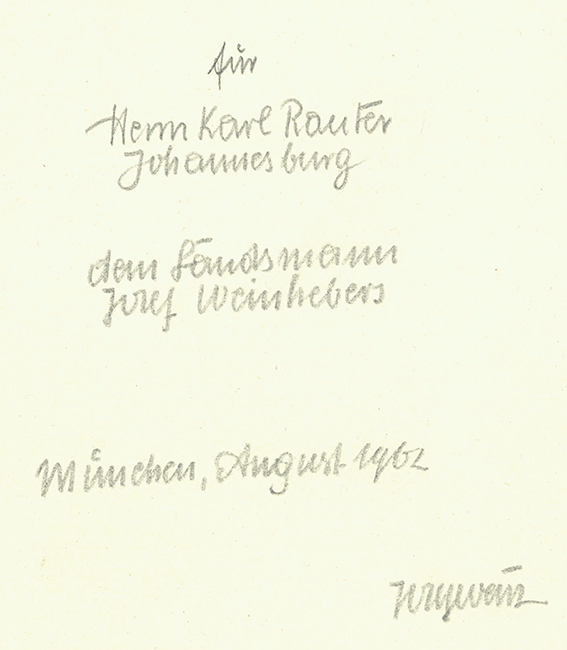 für
Herrn Karl Rauter
Johannesburg
dem Landsmann
Josef Weinhebers
München, August 1962